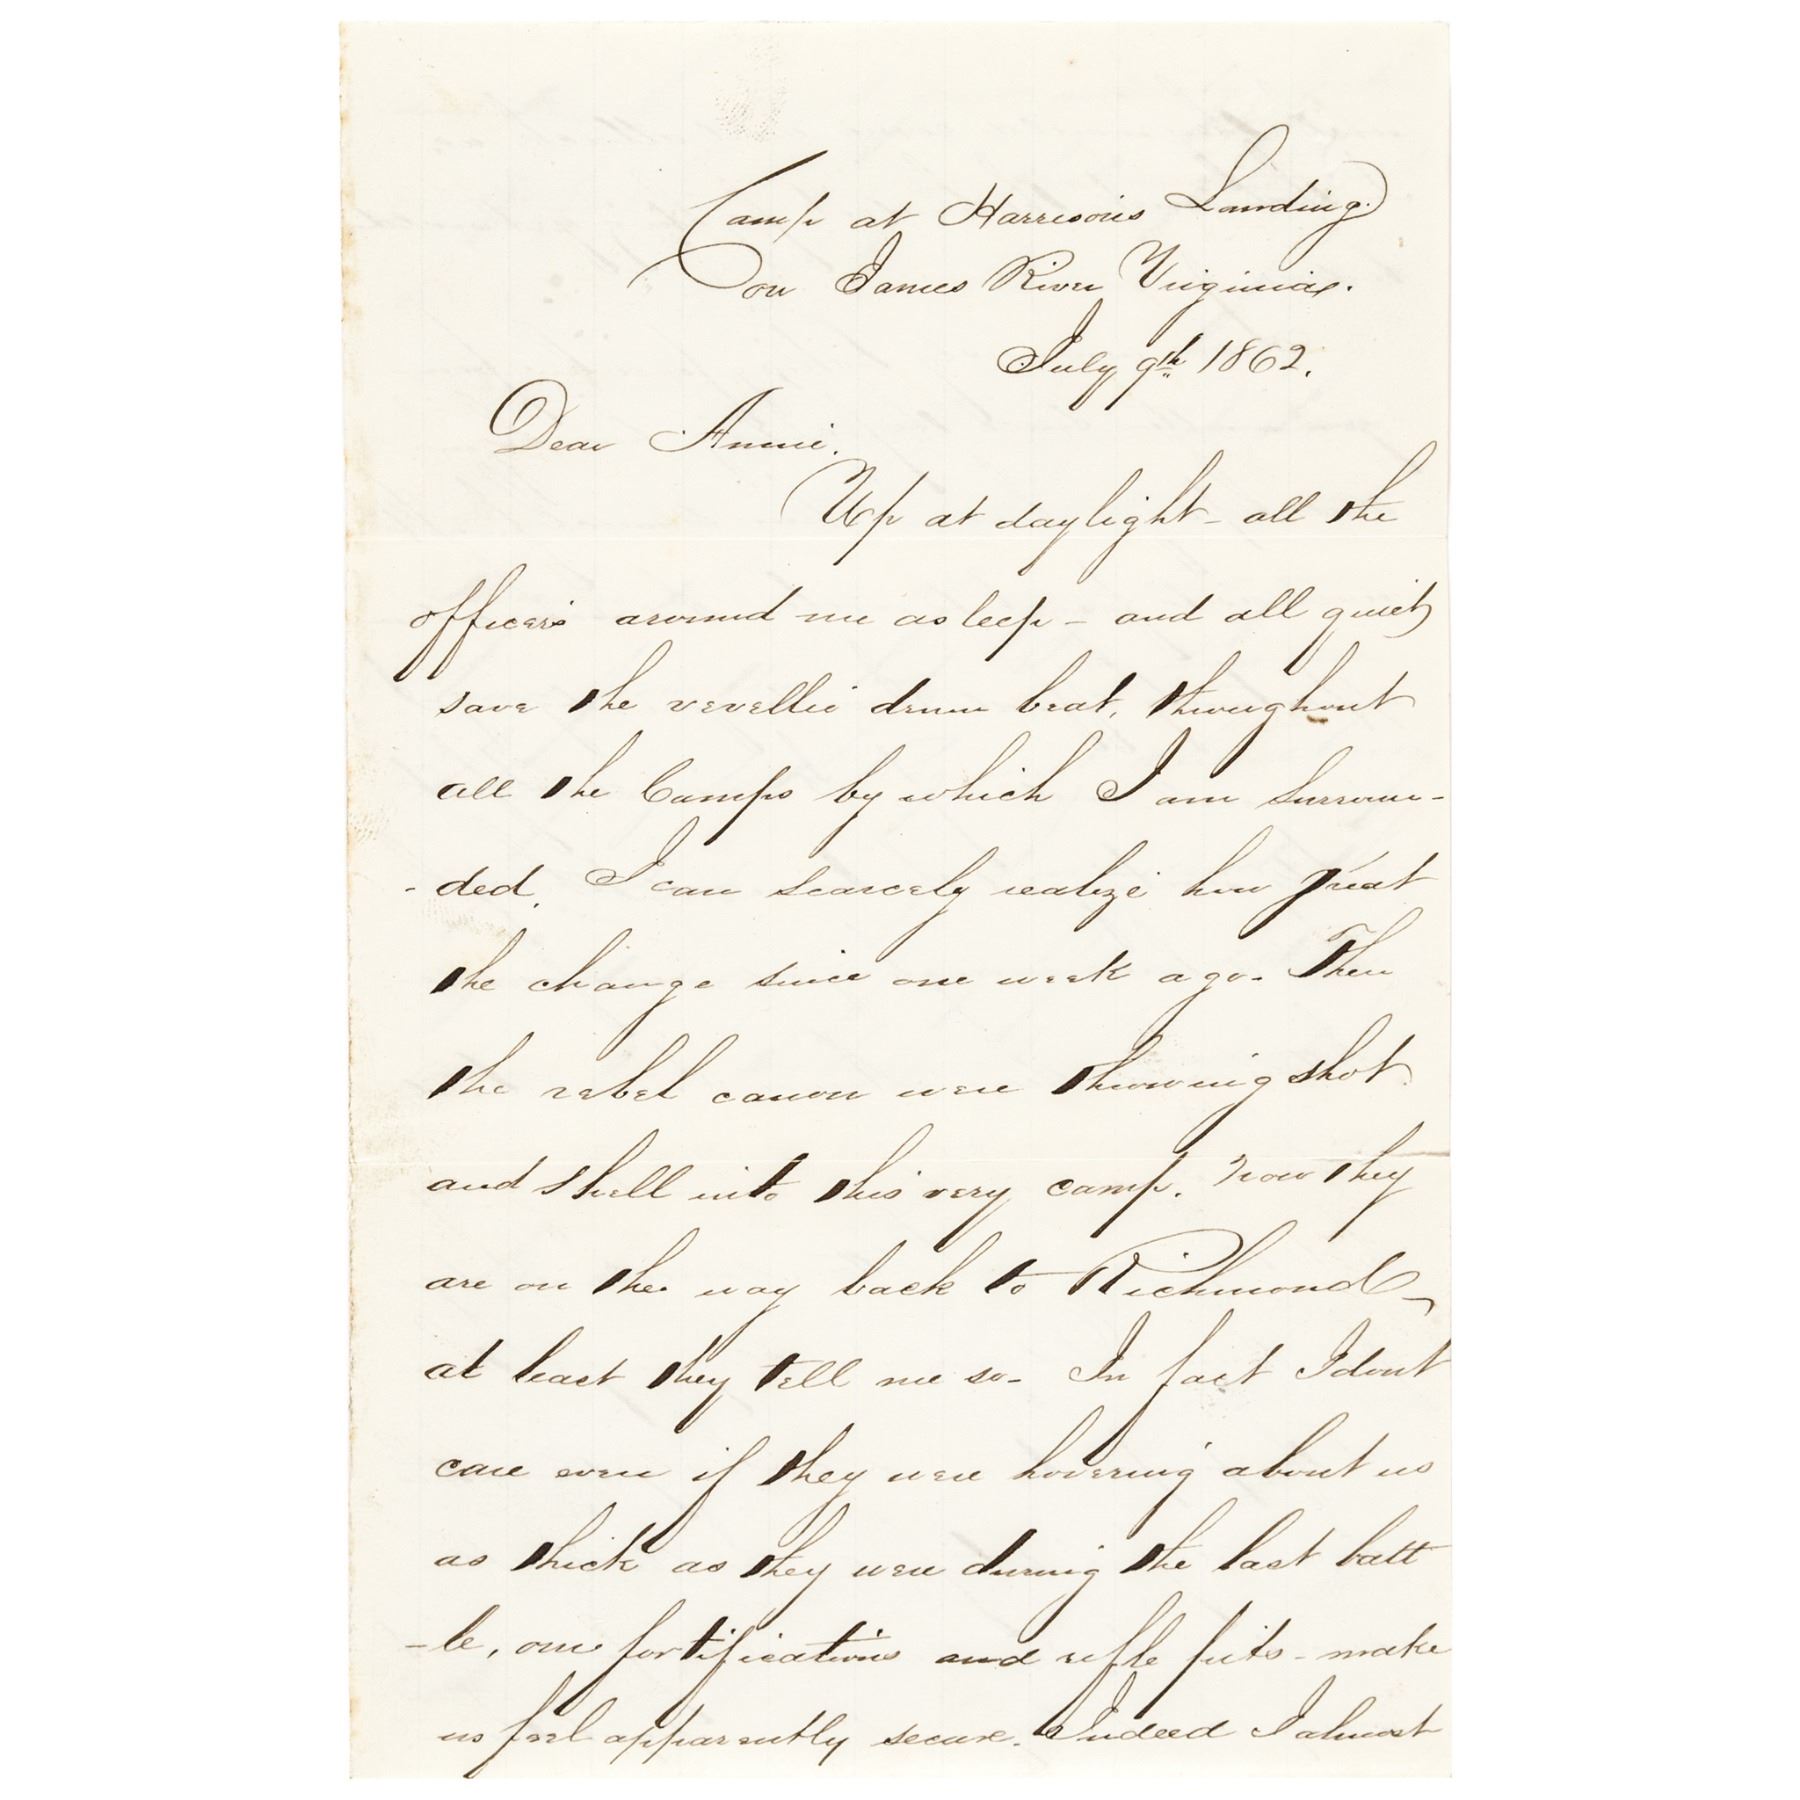 Camp at Harrison's Landing.
on James River Virginia.
July 9th 1862.
Dear Annie.
Up at daylight - all the
officers around me asleep - and all quiet
save the revellie drum beat, throughout
all the Camps by which I am surroun-
-ded. I can scarcely realize how great
the change since one week ago - Then
the rebel canon were throwing shot
and shell into this very camp. Now they
are on the way back to Richmond -
at least they tell me so - In fact I dont
care even if they were hovering about us
as thick as they were during the last batt
-le, our fortifications and rifle pits - make
us feel apparently secure. Indeed I almost